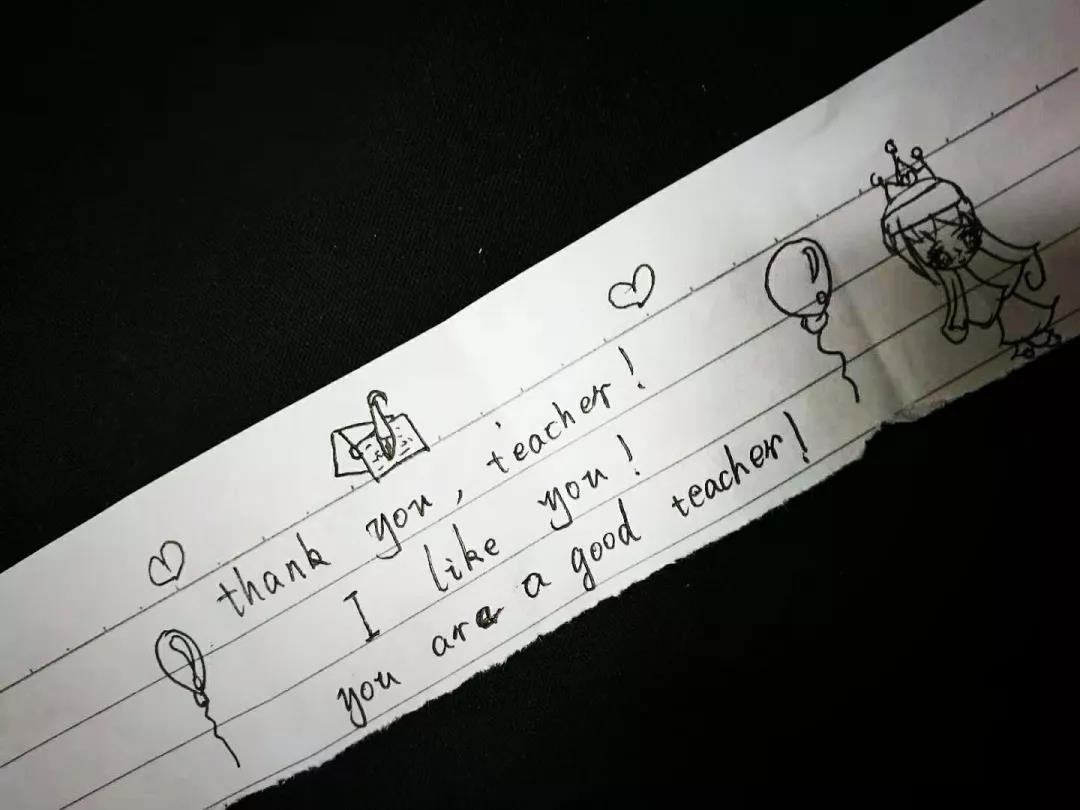 thank you, teacher!
I like you!
you are a good teacher!